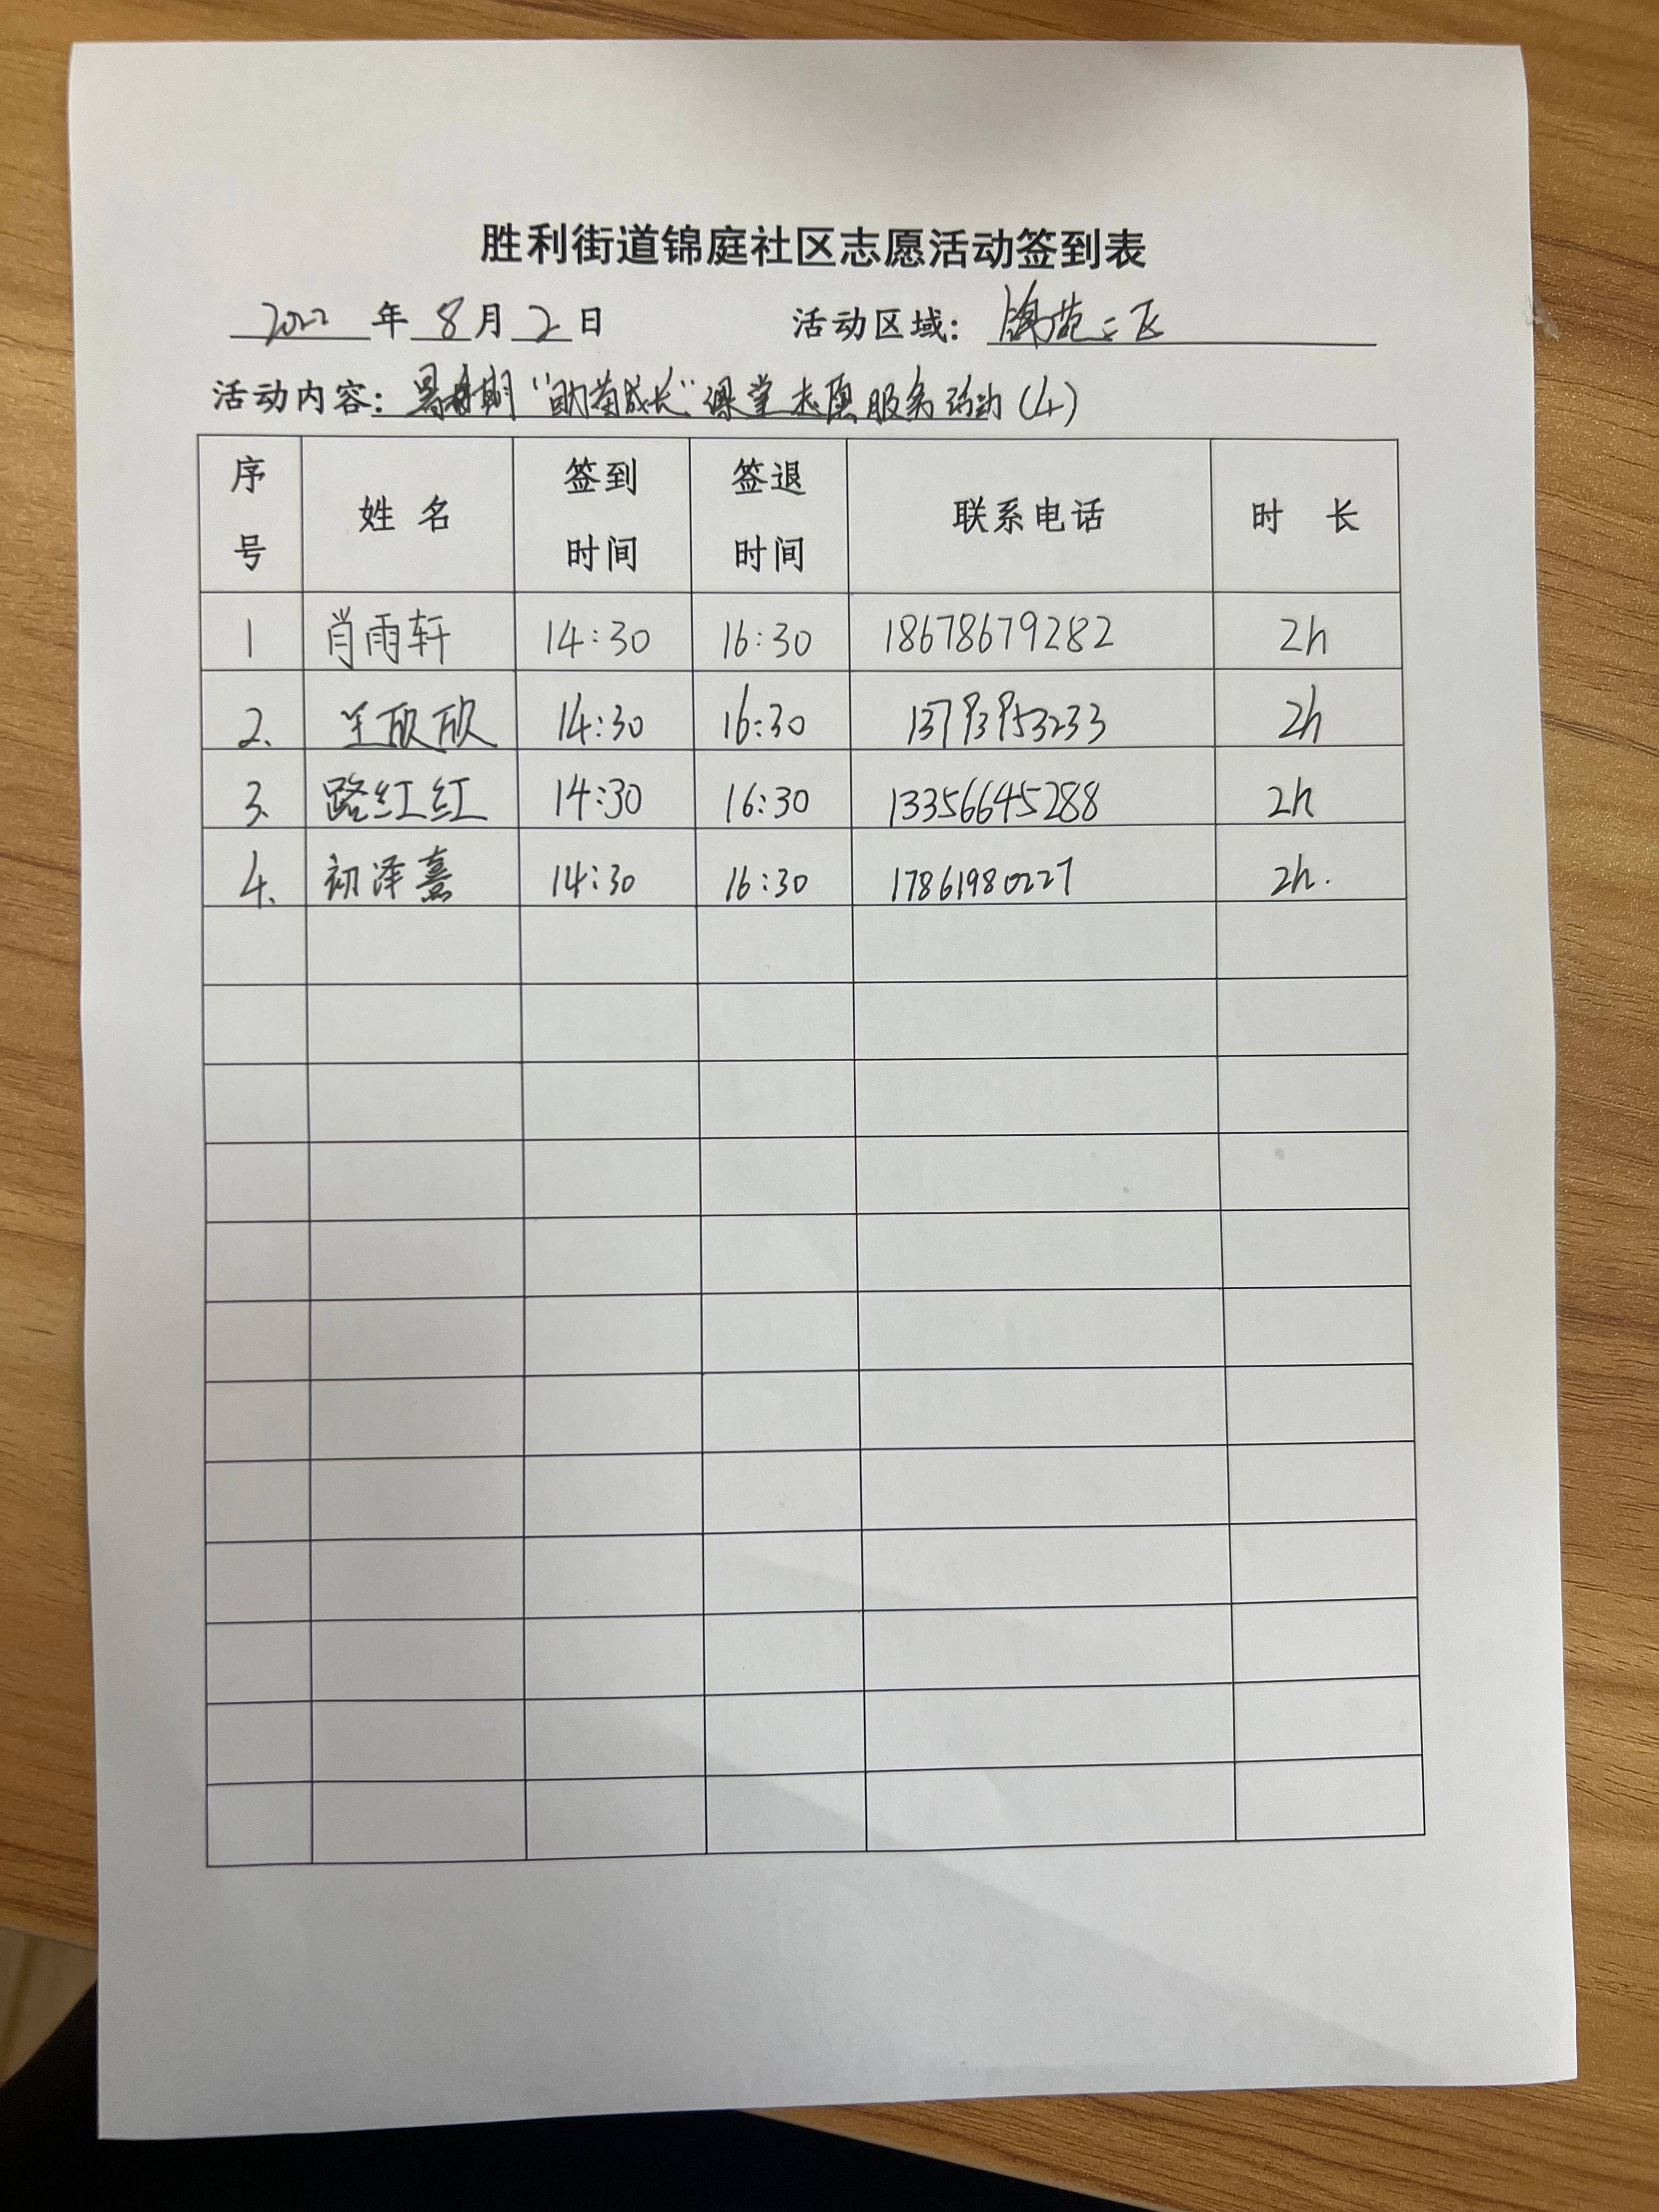 胜利街道锦庭社区志愿活动签到表
2022 年 8 月 2 日 活动区域: 锦苑二区
活动内容: 暑期"助苗成长"课堂志愿服务活动(4)
序号 姓名 签到时间 签退时间 联系电话 时长
1 肖雨轩 14:30 16:30 18678679282 2h
2. 王欣欣 14:30 16:30 13793953233 2h
3. 路红红 14:30 16:30 13356645288 2h
4. 初泽熹 14:30 16:30 17861980227 2h.